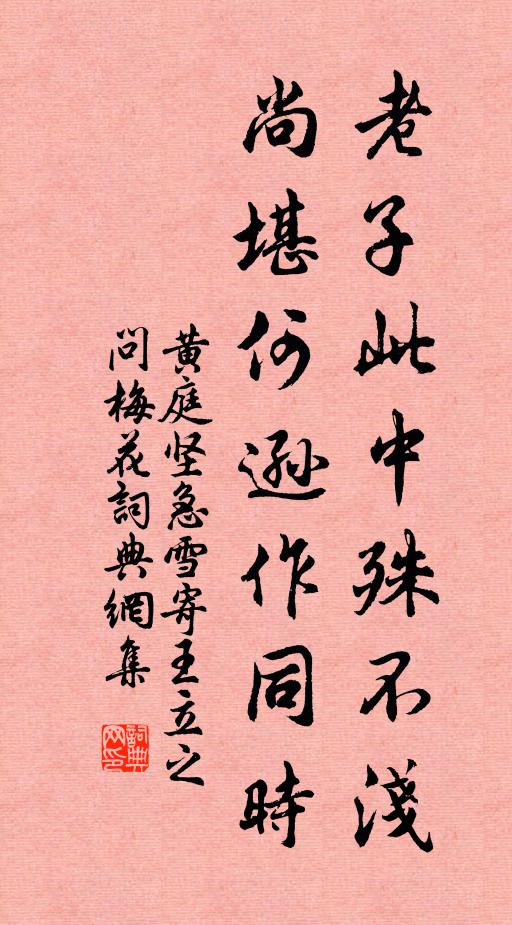 老子此中殊不淺
尚堪何遜作同時
黄庭坚急雪寄王立之
问梅花詞典網集
詞典网印